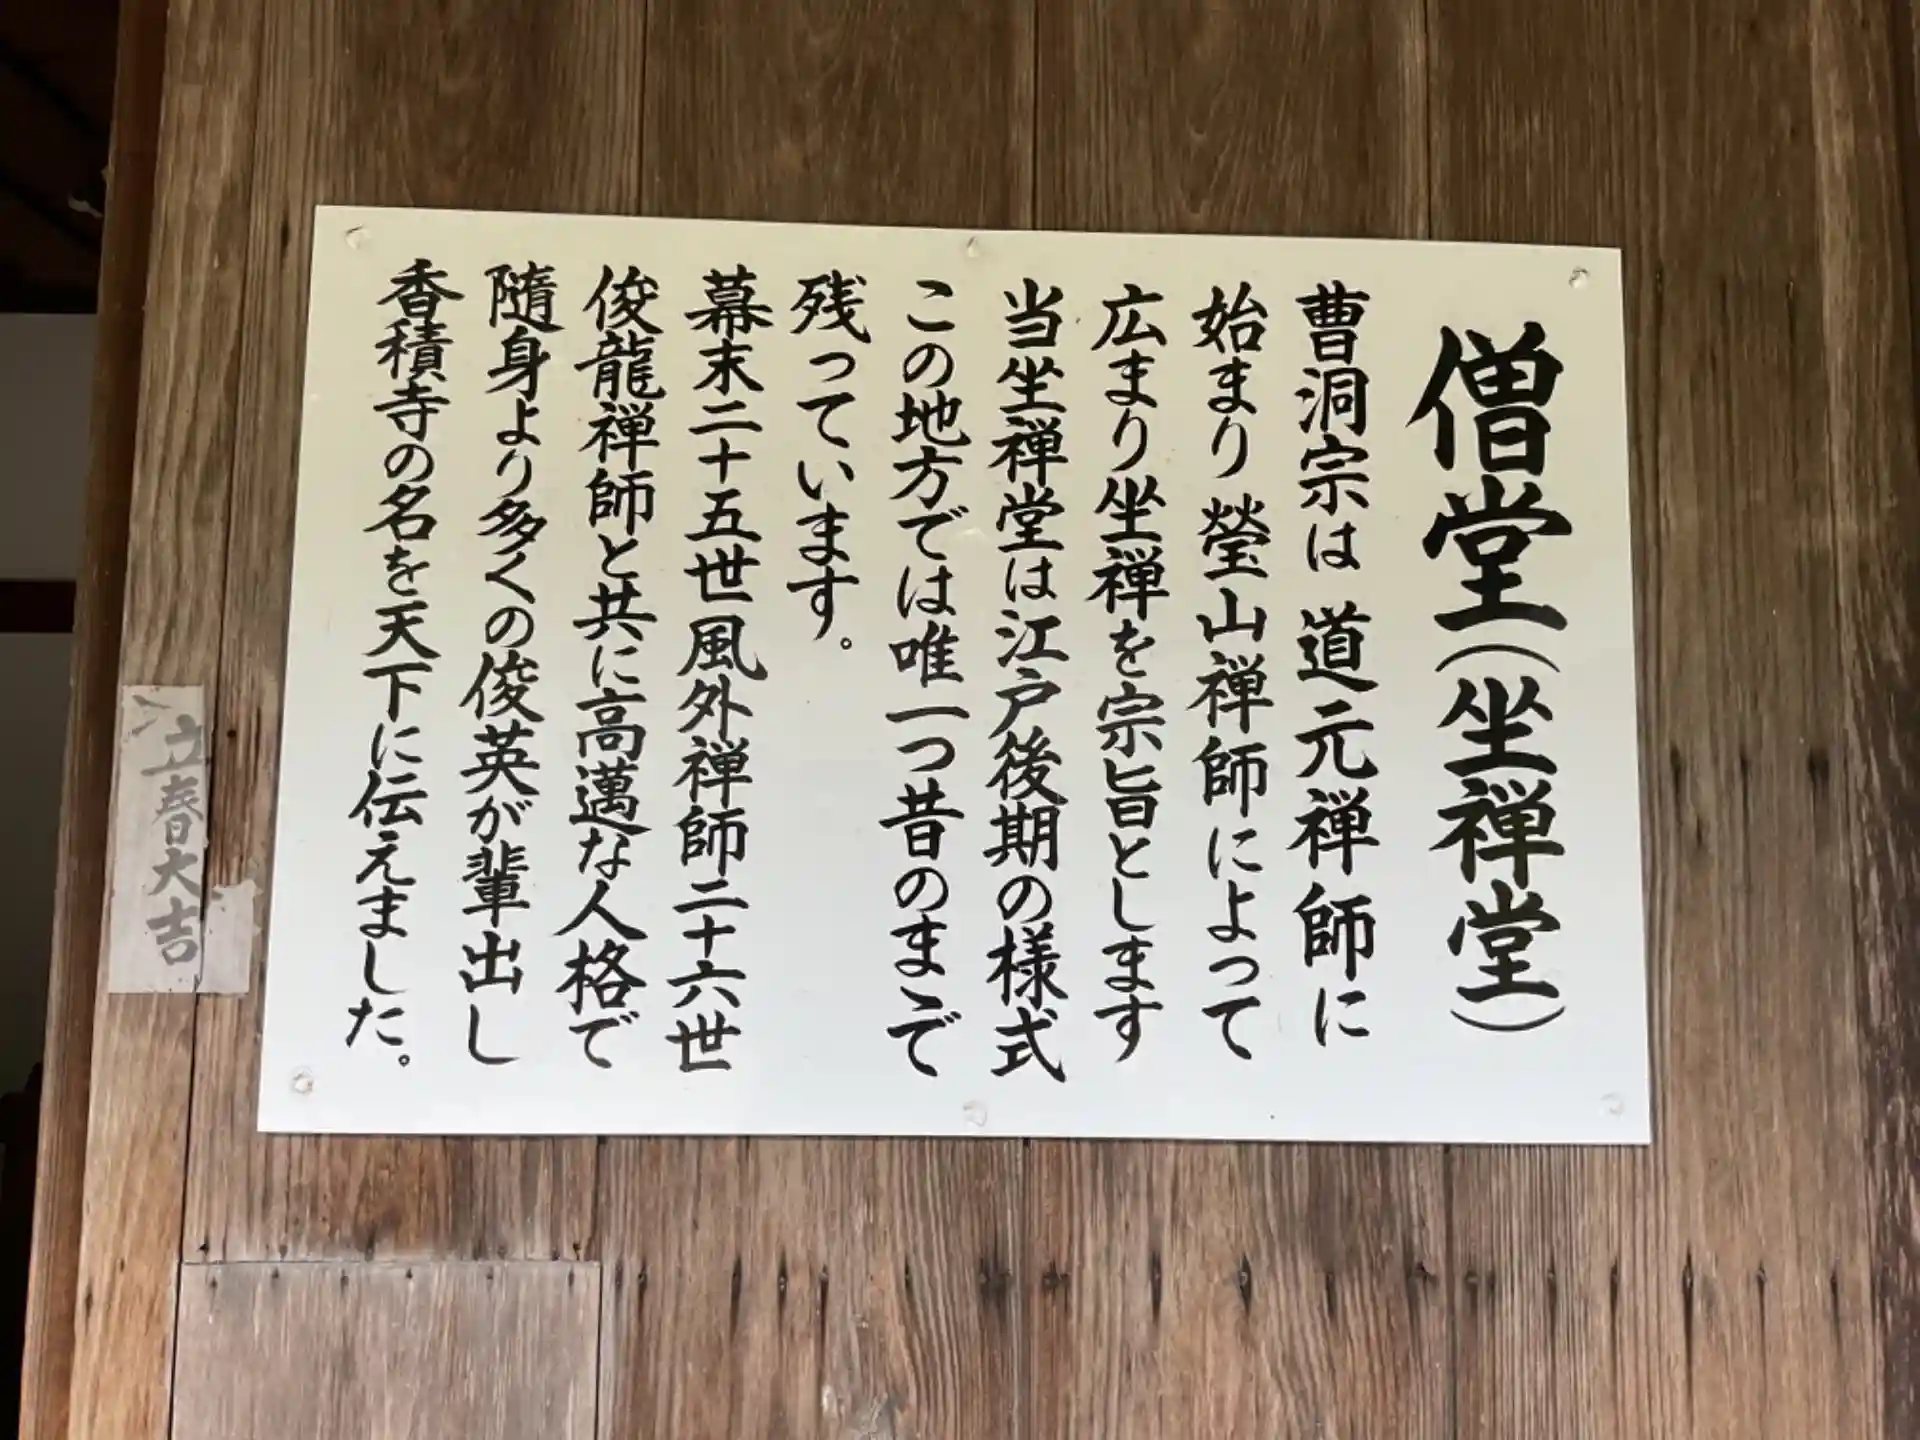 僧堂(坐禅堂)
曹洞宗は 道元禅師に
始まり 瑩山禅師によって
広まり坐禅を宗旨とします
当坐禅堂は江戸後期の様式
この地方では唯一つ昔のまゝで
残っています。
幕末二十五世風外禅師二十六世
俊龍禅師と共に高邁な人格で
隨身より多くの俊英が輩出し
香積寺の名を天下に伝えました。
立春大吉